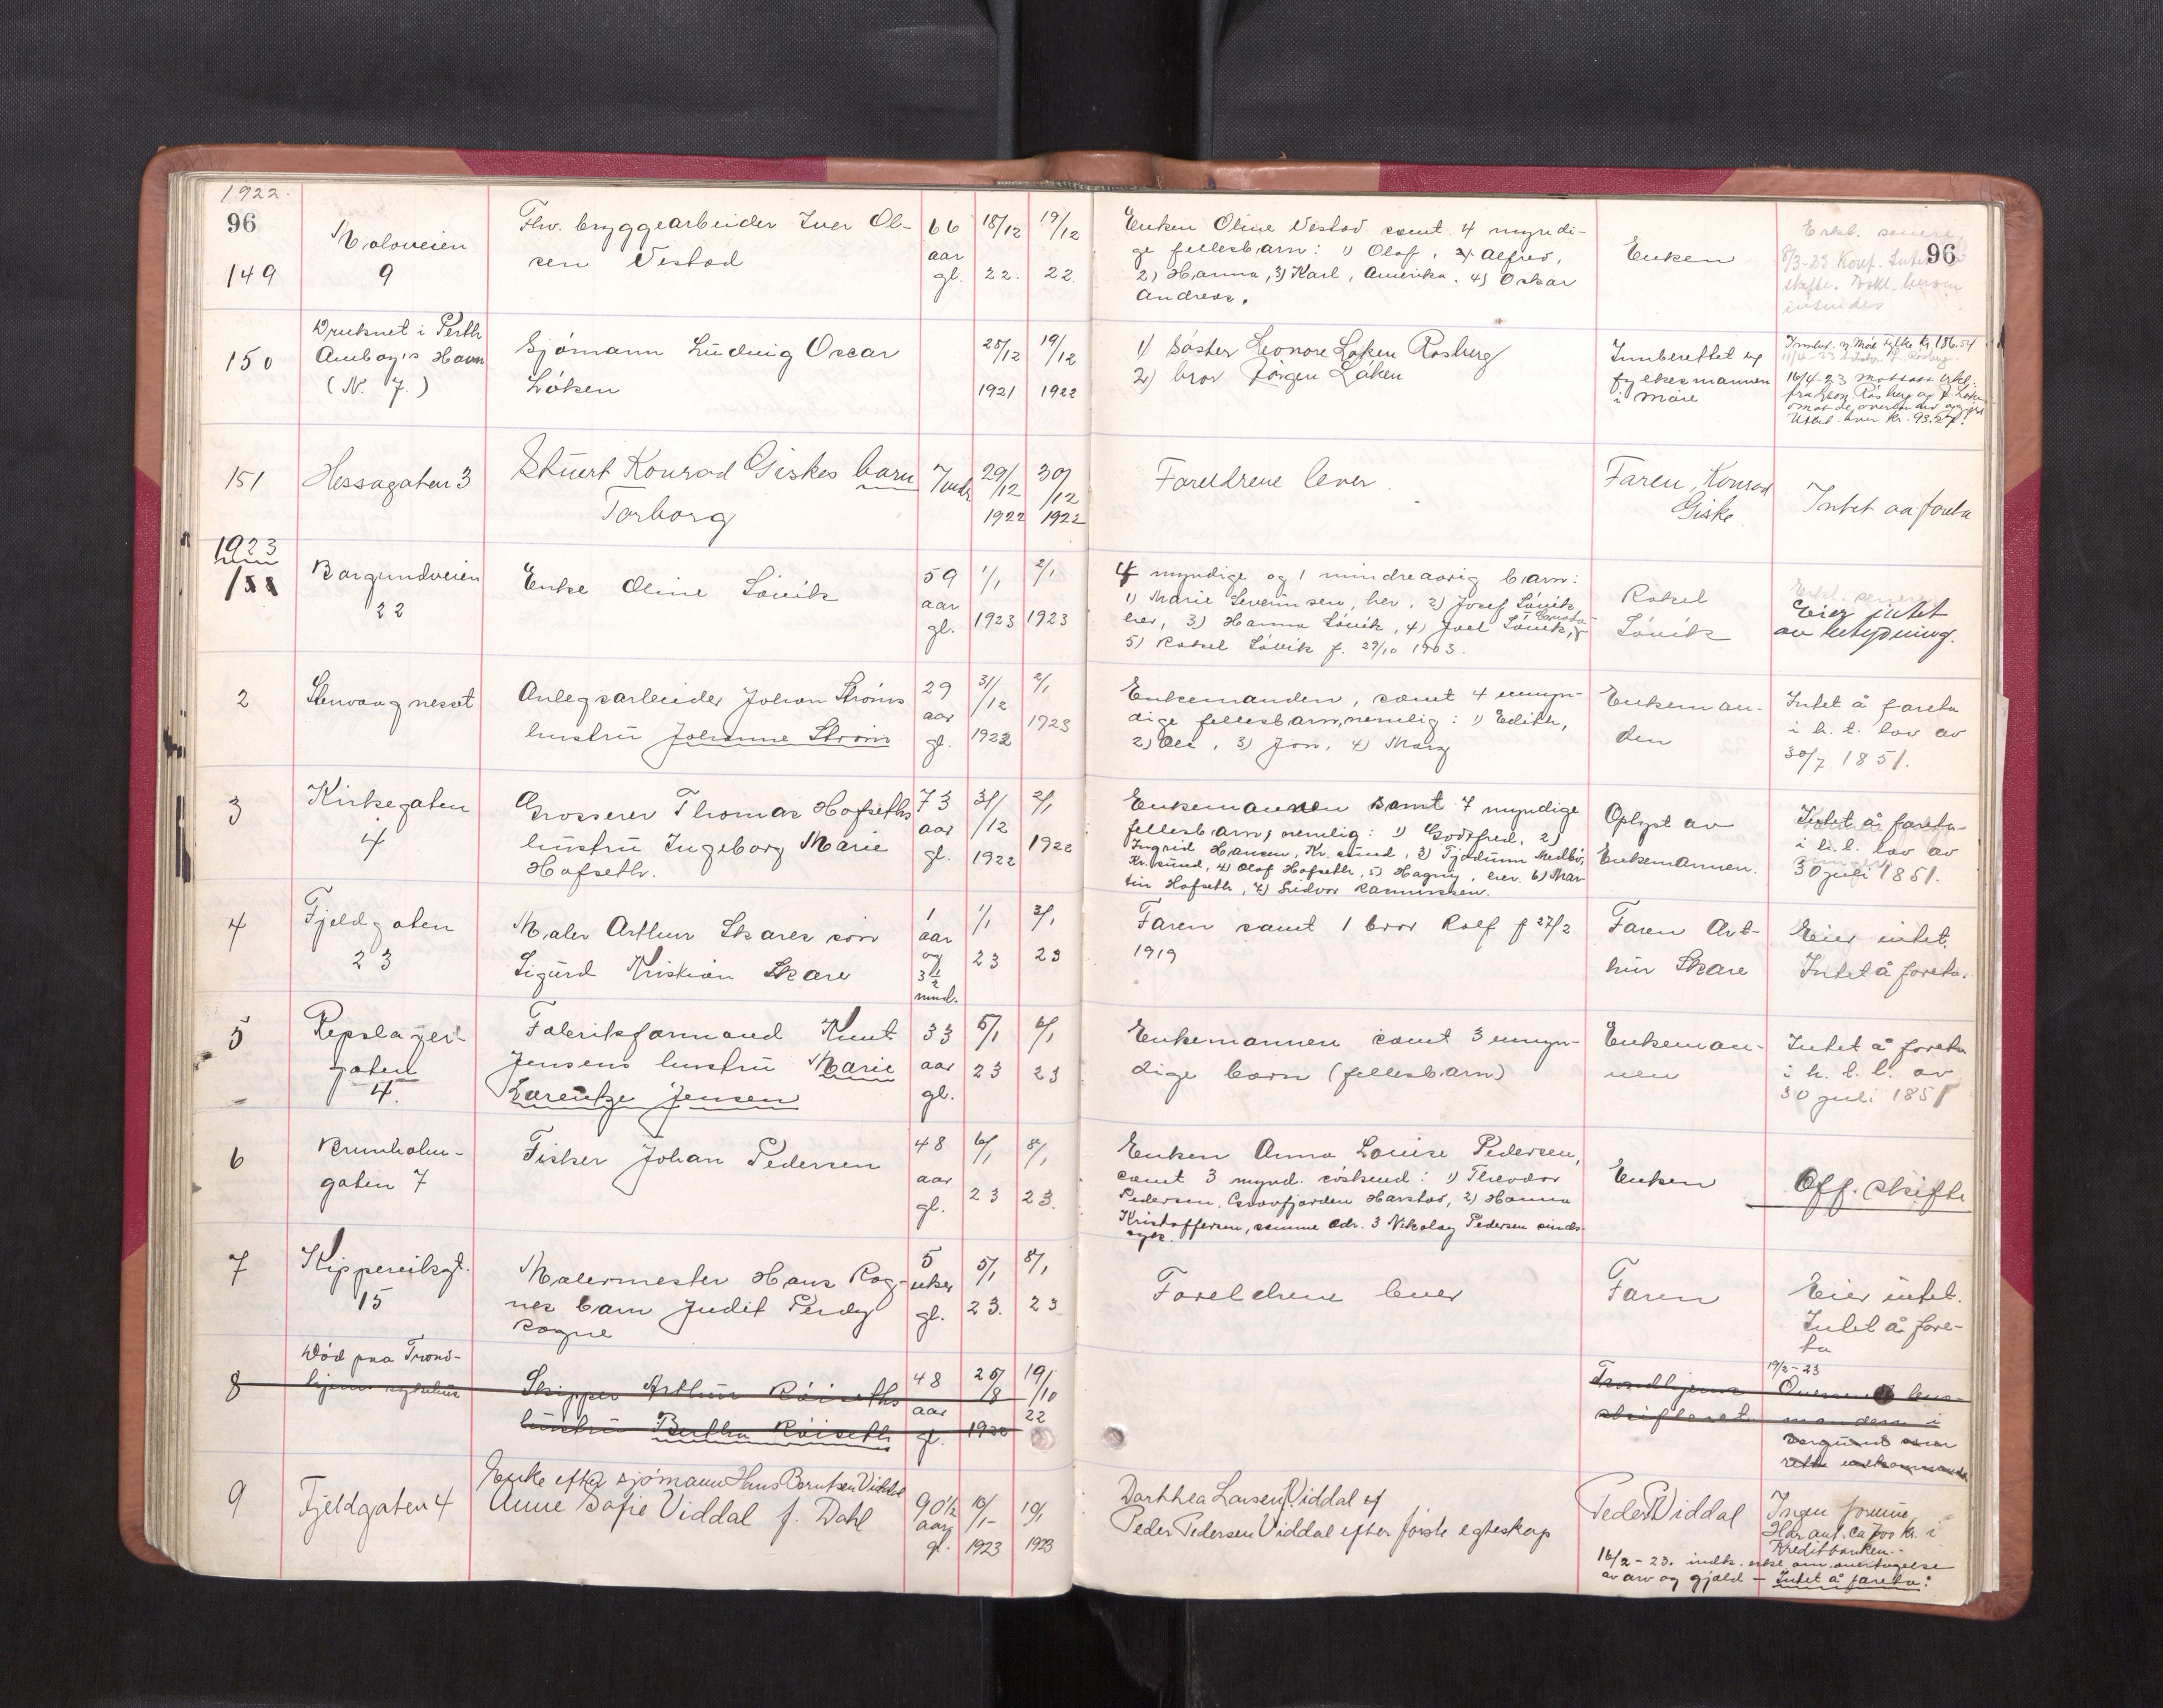 1922.
96
149
Moloveien
9
Fhv. bryggearbeider Iver Ol-
sen Vestad
66
aar
gl.
18/12
22.
19/12
22
Enken Oline Vestad samt 4 myndi-
ge fellesbarn: 1) Olaf, Alfred,
2) Hanna, 3) Karl, Amerika, 4) Oskar
Andreas.
Enken
Erkl. senere
8/3-23 Konf. Intet
96
skifte. herom
insendes
150
Druknet i Perth
Amboy's Havn
(N. J.)
Sjømann Ludvig Oscar
Løken
25/12
1921
19/12
1922
1) Søster Leonore Løken Rosberg
2) bror Jørgen Løken
Innberettet til
fylkesmannen
i Møre
Møre fylke kr 186.54
11/4-23
16/4-23 mottatt erkl.
fra Rosberg og J. Løken
om at de overtar arv og gjeld
Utbet. hver kr. 93.27.
151
Hessagaten 3
Stuert Konrad Giskes barn
Torborg
7 mdr
29/12
1922
30/12
1922
Foreldrene lever.
Faren, Konrad
Giske
Intet aa foreta
1923
1
Borgundveien
22
Enke Oline Løvik
59
aar
gl.
1/1
1923
2/1
1923
4 myndige og 1 mindreaarig barn:
1) Marie Severinsen, her, 2) Josef Løvik,
her, 3) Hanna Løvik, 4) Joel Løvik, i Canada
5) Rakel Løvik f. 29/10 1903.
Rakel
Løvik
Erkl. senere
Eier intet
av betydning.
2
Stenvaagneset
Anlegsarbeider Johan Strøms
hustru Johanne Strøm
29
aar
gl.
31/12
1922
2/1
1923
Enkemanden, samt 4 umyn-
dige fellesbarn, nemlig: 1) Edith,
2) Ole, 3) Jon, 4) Mary
Enkeman-
den
Intet å foreta
i h. t. lov av
30/7 1851.
3
Kirkegaten
4
Grosserer Thomas Hofseths
hustru Ingeborg Marie
Hofseth.
73
aar
gl.
31/12
1922
2/1
1922
Enkemannen samt 7 myndige
fellesbarn, nemlig: 1) Godtfred, 2)
Ingrid Hansen, Kr.sund, 3) Tjodunn Medbø,
Kr.sund, 4) Olaf Hofseth, 5) Hagny, her. 6) Mar-
tin Hofseth, 7) Lidvor Rasmussen.
Oplyst av
Enkemannen.
Intet å foreta
i h. t. lov av
30 juli 1851.
4
Fjeldgaten
23
Maler Arthur Skares søn
Sigurd Kristian Skare
1
aar
og
3 1/2
mnd.
1/1
23
3/1
23
Faren samt 1 bror Rolf f 27/2
1919
Faren Art-
hur Skare
Eier intet.
Intet å foreta.
5
Repslager-
gaten
4.
Fabrikformand Knut
Jensens hustru Marie
Larentze Jensen
33
aar
gl.
5/1
23
6/1
23
Enkemannen samt 3 umyn-
dige barn (fellesbarn)
Enkeman-
nen
Intet å foreta
i h. t. l. av
30 juli 1851
6
Brunholm-
gaten 7
Fisker Johan Pedersen
48
aar
gl.
6/1
23
8/1
23.
Enken Anna Louise Pedersen,
samt 3 mynd. søskend: 1) Theodor
Pedersen, Harstad, 2) Hanna
Kristoffersen, samme adr. 3 Nikolay Pedersen sinds-
syk.
Enken
Off. skifte
7
Kipperviksgt.
15
Malermester Hans Rog-
nes barn Judit Perdy
Rogne
5
uker
gl.
5/1
23.
8/1
23
Foreldrene lever
Faren
Eier intet.
Intet å fore-
ta
8
Død paa Trond-
hjems sykehus
Skipper Arthur Røiseths
hustru Bertha Røiseth
48
aar
gl.
25/8
1920
19/10
22
Trondhjems
skifteret
19/2-23
Oversendt lens-
manden i
Borgund som
rette vedkommende
9
Fjeldgaten 4
Enke efter sjømann Hans Berntsen Viddal
Anne Sofie Viddal f. Dahl
90 1/2
aar
gl.
10/1
1923
10/1
1923
Dorthea Larsen f. Viddal og
Peder Pedersen Viddal efter første egteskap
Peder P Viddal
Ingen formue.
Har ant. ca 700 kr. i
Kreditbanken.
16/2-23. indk. erkl. om overtagelse
av arv og gjæld - Intet å foreta.